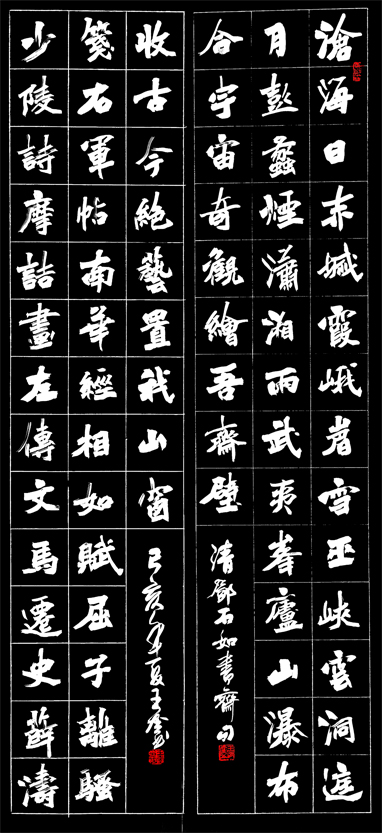 滄海日赤城霞峨眉雪巫峽雲洞庭
月彭蠡煙瀟湘雨武夷峯廬山瀑布
合宇宙奇觀繪吾齋壁
清鄧石如書齋句
少陵詩摩詰畫左傳文馬遷史薛濤
箋右軍帖南華經相如賦屈子離騷
收古今絕藝置我山窗
己亥年夏王